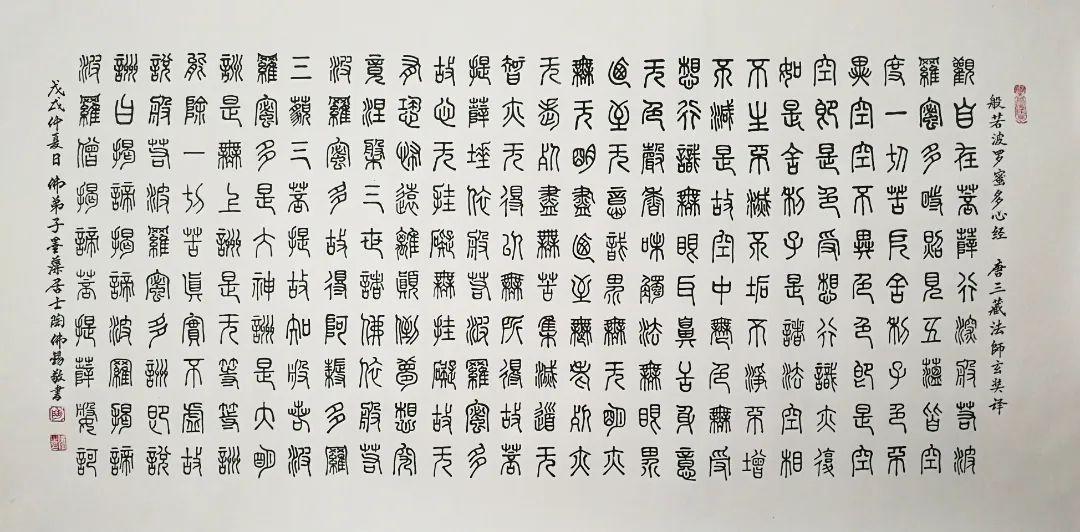 般若波罗蜜多心经 唐三藏法師玄奘译
觀自在菩薩行深般若波
羅蜜多時照見五蘊皆空
度一切苦厄舍利子色不
異空空不異色色即是空
空即是色受想行識亦復
如是舍利子是諸法空相
不生不滅不垢不淨不增
不減是故空中無色無受
想行識無眼耳鼻舌身意
无色聲香味觸法無眼界
乃至无意識界無无明亦
無无明盡乃至無老死亦
无老死盡無苦集滅道无
智亦无得以無所得故菩
提薩埵依般若波羅蜜多
故心无挂礙無挂礙故无
有恐怖遠離顛倒夢想究
竟涅槃三世諸佛依般若
波羅蜜多故得阿耨多羅
三藐三菩提故知般若波
羅蜜多是大神詶是大明
詶是無上詶是无等等詶
能除一切苦真實不虛故
說般若波羅蜜多詶即說
詶曰揭諦揭諦波羅揭諦
波羅僧揭諦菩提薩婆訶
戊戌仲夏日 佛弟子墨藻居士陶佛錫敬書